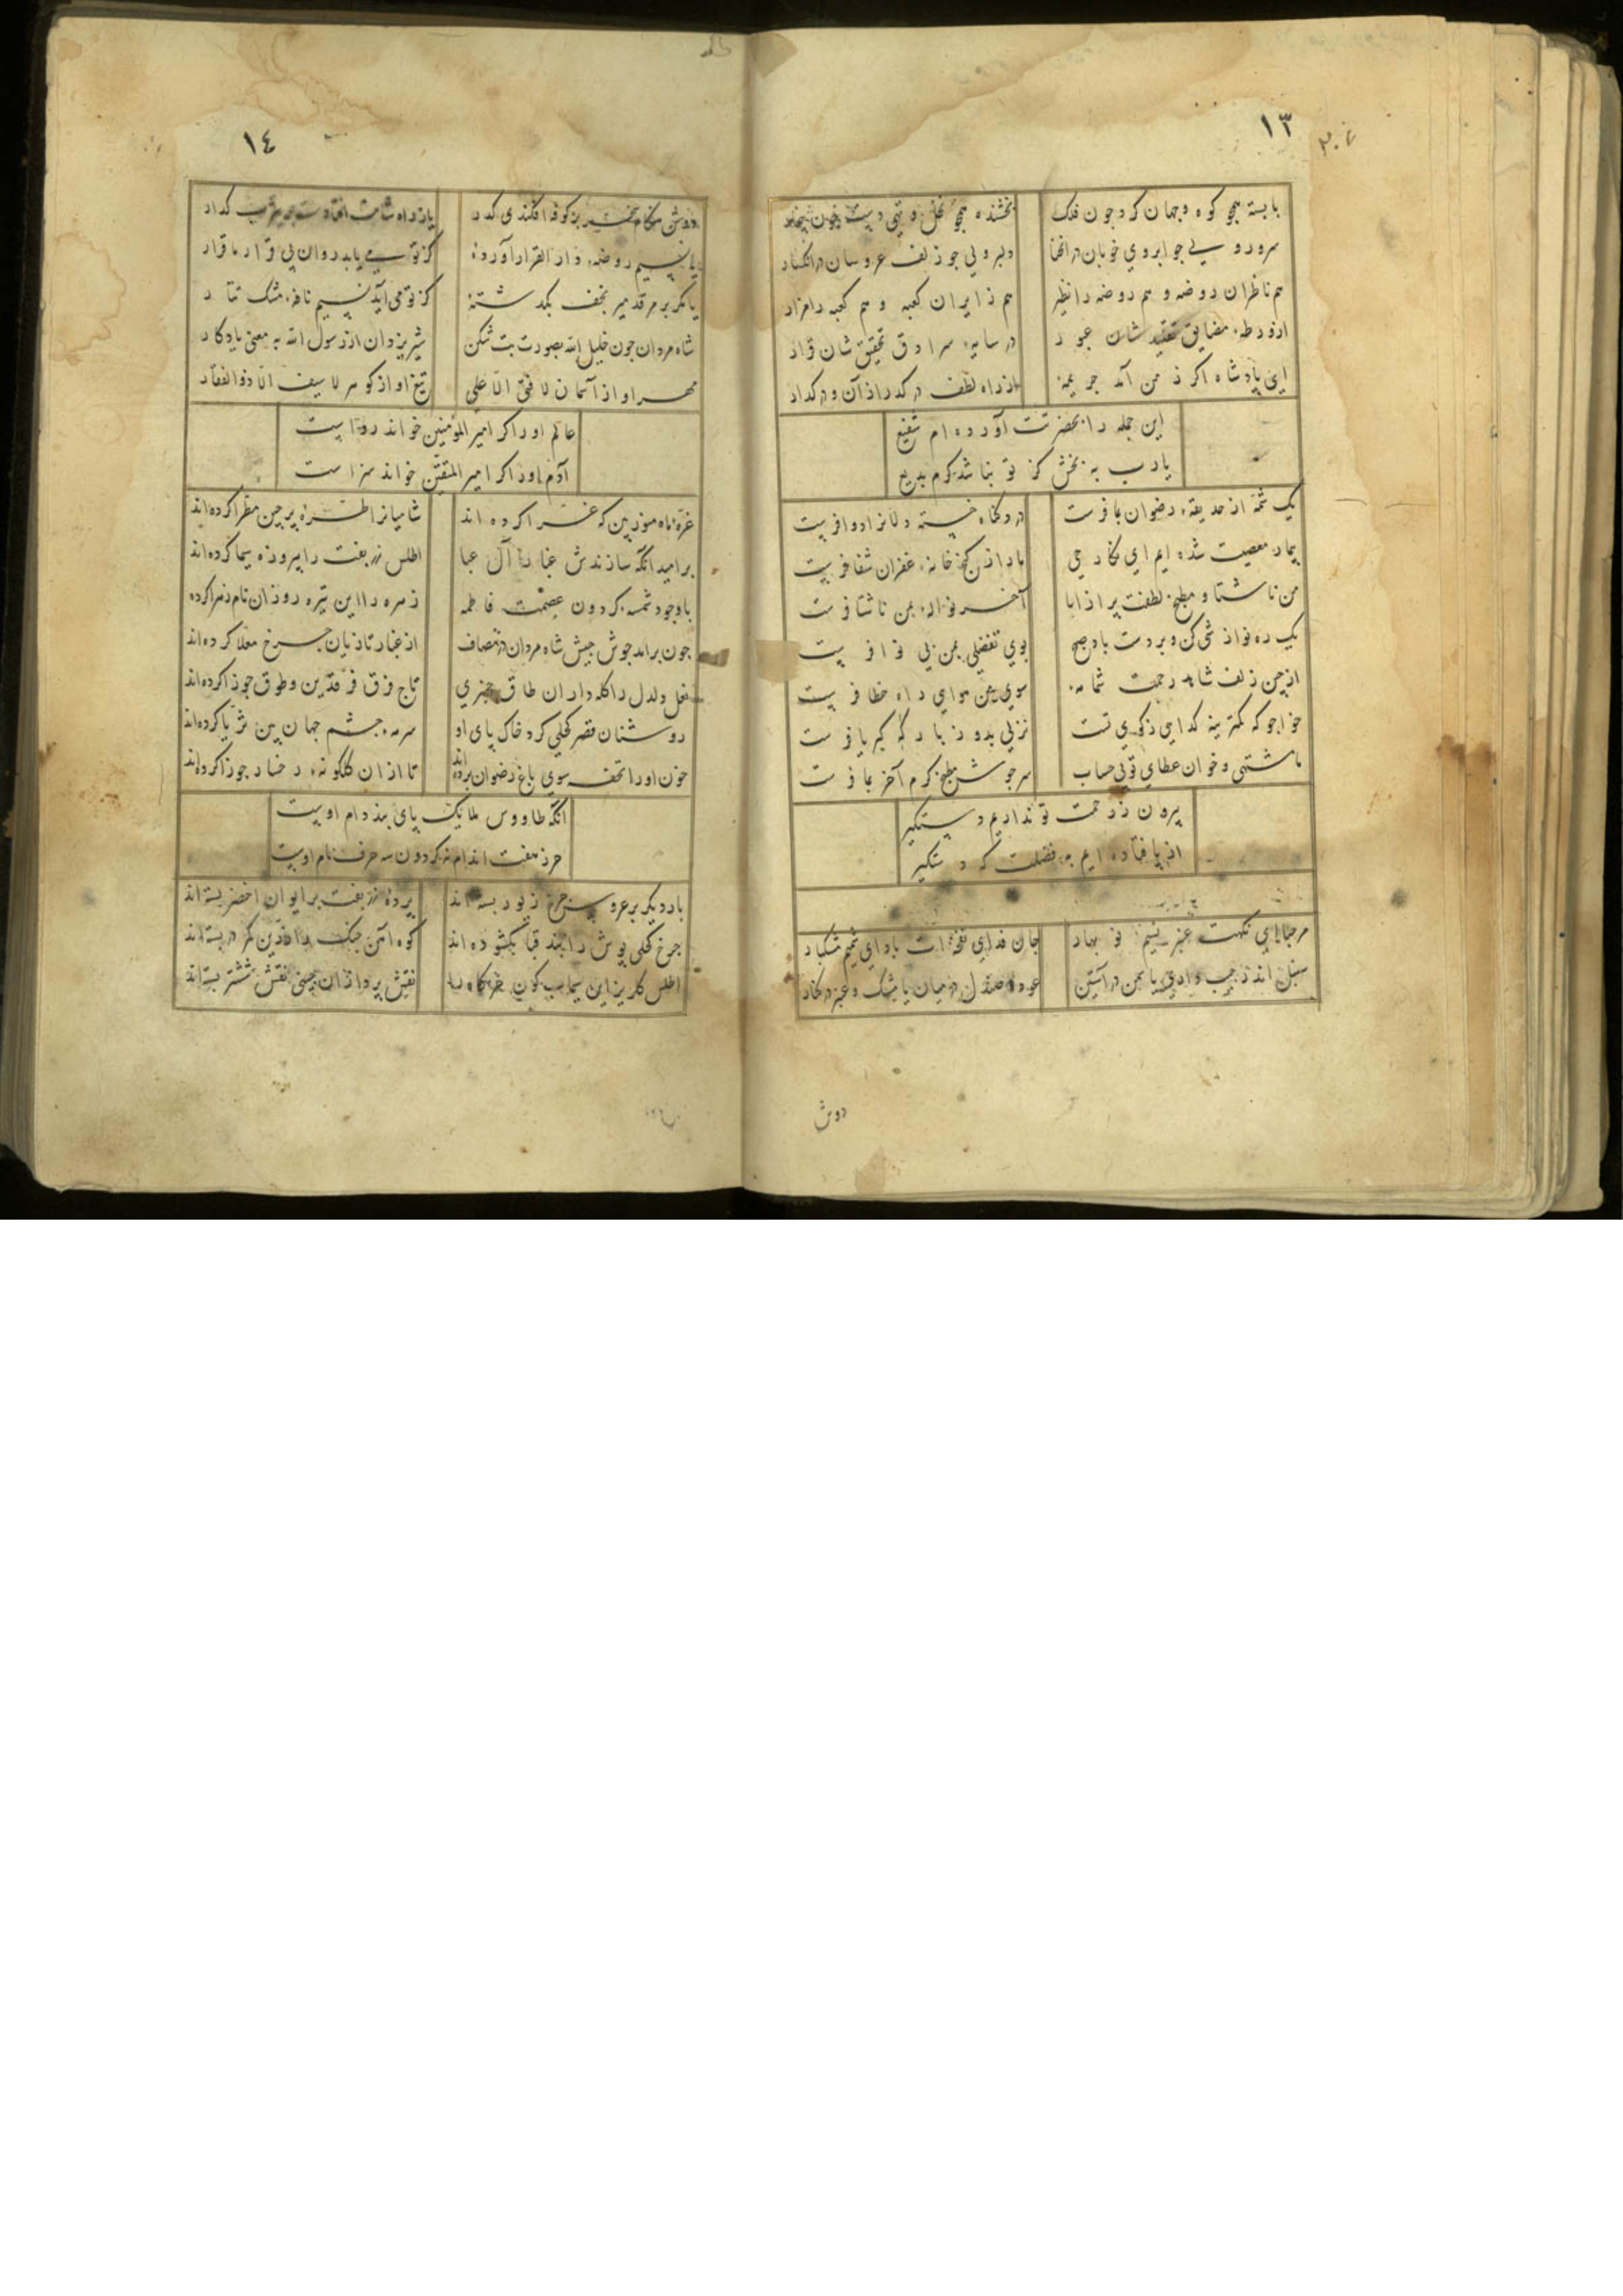 ١٣
با بسته همچو کوه و جهان کرد چون فلک
بخشنده همچو نخل و تهی دست چون چنار
سرور ولی چو ابروی خوبان در انحنا
دلبر ولی چو زلف عروسان در انکسار
هم ناظران روضه و هم روضه را نظیر
هم زایران کعبه و هم کعبه را مزار
از ورطه مضایق تقلید شان عبور
در سایه سرادق تحقیق شان قرار
ای پادشاه اگر ز من آمد جریمه
از راه لطف در گذر از آن و در گذار
این جمله را بحضرتت آورده ام شفیع
یا رب به بخش کز تو نباشد کرم بدیع
یک شمه از حدیقه رضوان بما فرست
در دلخاه خسته دلانرا دوا فرست
بیمار معصیت شده ایم ای حی
ما را ز کنج خانه غفران شفا فرست
من ناشتا و مطبخ لطفت پر از ابا
آخر نواله بمن ناشتا فرست
یک ره نوازشی کن و بر دست باد صبح
بوی تفضلی بمن بی نوا فرست
از چین زلف شاهد رحمت شمامه
سوی من هوایی راه خطا فرست
خواجو که کمترینه گدایی ز کوی تست
نزلی بدو ز بارگه کبریا فرست
ما مشتهی و خوان عطای تو بی حساب
سرجوش مطبخ کرم آخر بما فرست
بیرون ز رحمت تو نداریم دستگیر
از پا فتاده ایم به فضلت که دستگیر
مرحبا ای نکهت عنبر نسیم نو بهار
جان فدای نفحه ات باد ای شمیم مشکبار
سنبل اندر جیب داری یا سمن در آستین
عود و صندل در میان یا مشک و عنبر در کنار
دوش
١٤
دوش هنگام بر کوفه افکندی گذر
یا ز راه شامت افتادست بر یثرب گذار
یا نسیم روضه دار القرار آورده
کز تو می یابد روان بی قرار ما قرار
یا مگر بر مرقد میر نجف بگذشته
کز تو می آید نسیم نافه مشک تتار
شاه مردان چون خلیل الله بصورت بت شکن
شیر یزدان از رسول الله به معنی یادگار
مهر او از آسمان لا فتی الا علی
تیغ او از گوهر لا سیف الا ذوالفقار
عالم او را گر امیر المؤمنین خواند رواست
آدم او را گر امیر المتقین خواند سزاست
غره ماه موز بین که غرا کرده اند
شامیانرا طره پر چین مطرا کرده اند
بر امید آنکه سازندش عبا را آل عبا
اطلس زربفت را پیروزه سیما کرده اند
با وجود شمسه گردون عصمت فاطمه
زهره را این تیره روزان نام زهرا کرده
چون برامد جوش جیش شاه مردان در مصاف
از غبار تازیان چرخ معلا کرده اند
نعل دلدل را کله داران طاق چنبری
تاج فرق فرقدین و طوق جوزا کرده اند
روشنان قصر کحلی گرد خاک پای او
سرمه چشم جهان بین ثریا کرده اند
خون او را تحفه سوی باغ رضوان برده اند
تا از آن گلگونه رخسار حورا کرده اند
آنکه طاووس ملایک پای بند دام اوست
حرز هفت اندام نه گردون سه حرف نام اوست
بار دیگر بر عروس چرخ زیور بسته اند
پرده زربفت بر ایوان اخضر بسته اند
چرخ کحلی پوش را بند قبا بگشوده اند
کوه آهن چنگ را زرین کمر در بسته اند
اطلس گلریز این سیماب گون خرگاه را
نقش پردازان چینی نقش ششتر بسته اند